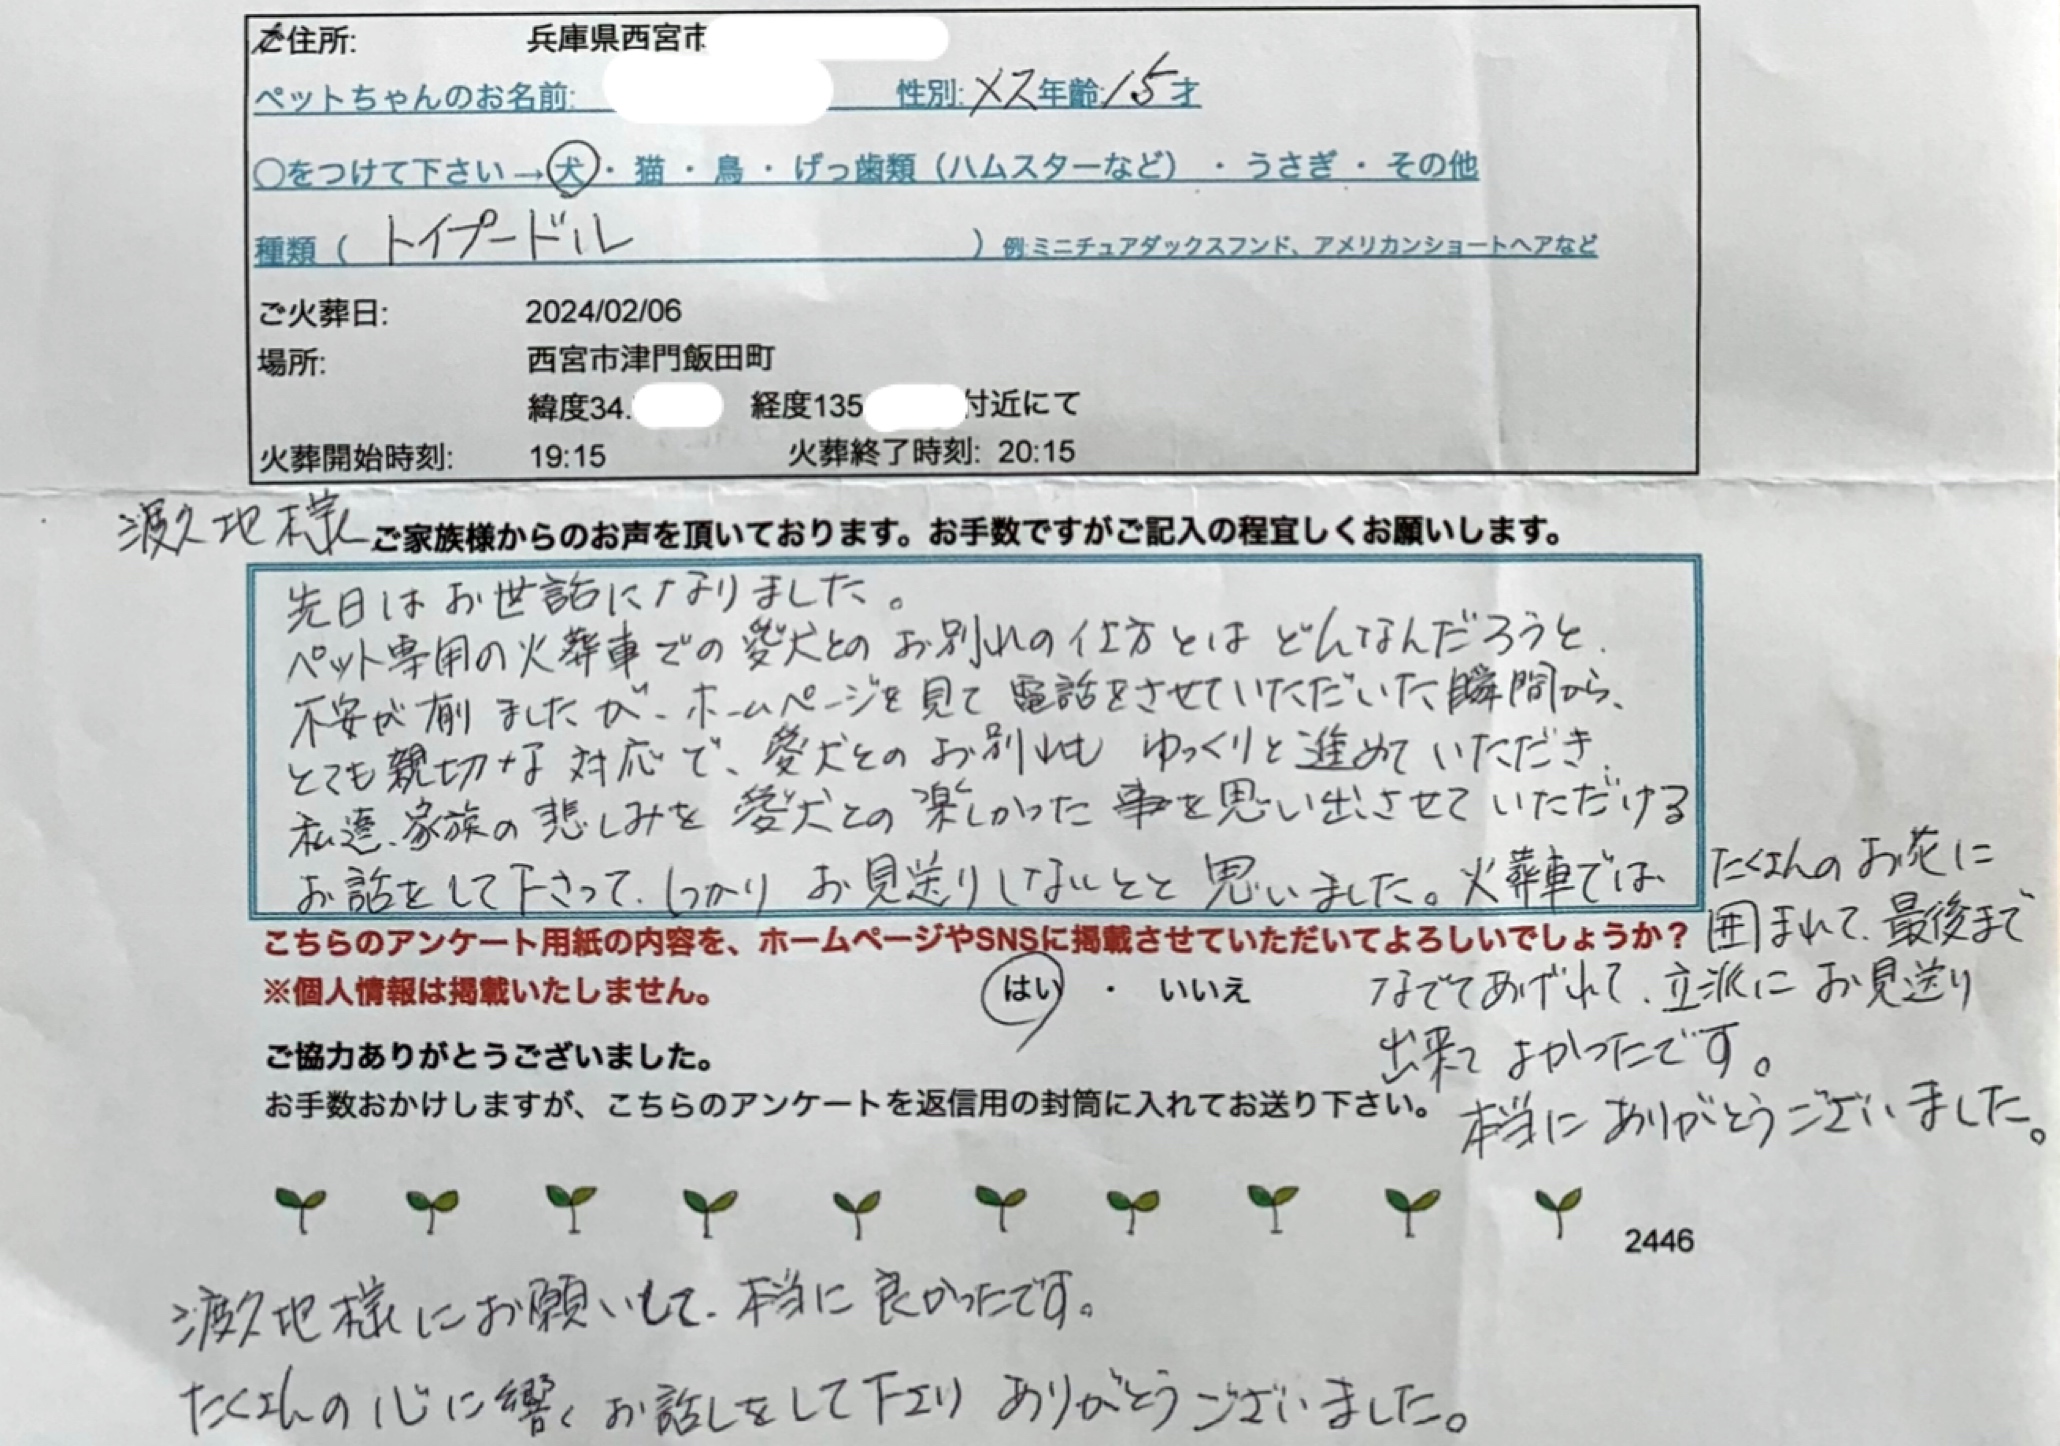 ご住所: 兵庫県西宮市
ペットちゃんのお名前: 性別:メス年齢:15才
○をつけて下さい→犬・猫・鳥・げっ歯類（ハムスターなど）・うさぎ・その他
種類（トイプードル）例:ミニチュアダックスフンド、アメリカンショートヘアなど
ご火葬日: 2024/02/06
場所: 西宮市津門飯田町
緯度34. 経度135 付近にて
火葬開始時刻: 19:15 火葬終了時刻: 20:15
渡久地様
ご家族様からのお声を頂いております。お手数ですがご記入の程宜しくお願いします。
先日はお世話になりました。
ペット専用の火葬車での愛犬とのお別れの仕方とはどんなんだろうと、
不安が有りましたが、ホームページを見て電話をさせていただいた瞬間から、
とても親切な対応で、愛犬とのお別れもゆっくりと進めていただき、
私達、家族の悲しみを愛犬との楽しかった事を思い出させていただける
お話をして下さって、しっかりお見送りしないとと思いました。火葬車では、
たくさんのお花に
囲まれて、最後まで
なでてあげれて、立派にお見送り
出来てよかったです。
本当にありがとうございました。
こちらのアンケート用紙の内容を、ホームページやSNSに掲載させていただいてよろしいでしょうか？
※個人情報は掲載いたしません。 はい ・ いいえ
ご協力ありがとうございました。
お手数おかけしますが、こちらのアンケートを返信用の封筒に入れてお送り下さい。
2446
渡久地様にお願いして、本当に良かったです。
たくさんの心に響くお話しをして下さりありがとうございました。